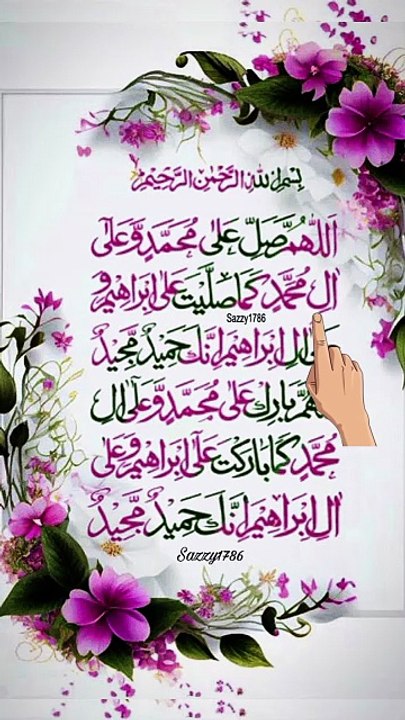 بِسْمِ اللهِ الرَّحْمٰنِ الرَّحِيْمِ
اَللّٰهُمَّ صَلِّ عَلٰى مُحَمَّدٍ وَّعَلٰٓى
اٰلِ مُحَمَّدٍ كَمَا صَلَّيْتَ عَلٰٓى اِبْرَاهِيْمَ وَ
Sazzy1786
اٰلِ اِبْرَاهِيْمَ اِنَّكَ حَمِيْدٌ مَّجِيْدٌ
بَارِكْ عَلٰى مُحَمَّدٍ وَّعَلٰٓى اٰلِ
مُحَمَّدٍ كَمَا بَارَكْتَ عَلٰٓى اِبْرَاهِيْمَ وَعَلٰٓى
اٰلِ اِبْرَاهِيْمَ اِنَّكَ حَمِيْدٌ مَّجِيْدٌ
Sazzy1786